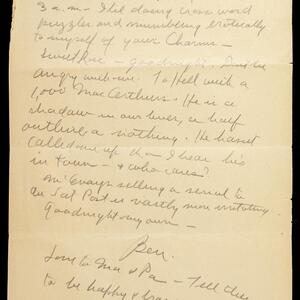 3 a.m. – I be doing cross word
puzzles and mumbling erotically
to myself of your Charms –
Sweet Rose – goodnight. Don't be
angry with me. To Hell with a
1,000 MacArthurs. He is a
shadow in our lives, a half
outline a nothing. He hasnt
called me up & – I hear he's
in town – & who cares?
McEvoys selling a serial to
the Sat Post is vastly more irritating.
Goodnight my own –
Ben.
Love to Ma & Pa – Tell
to be happy &